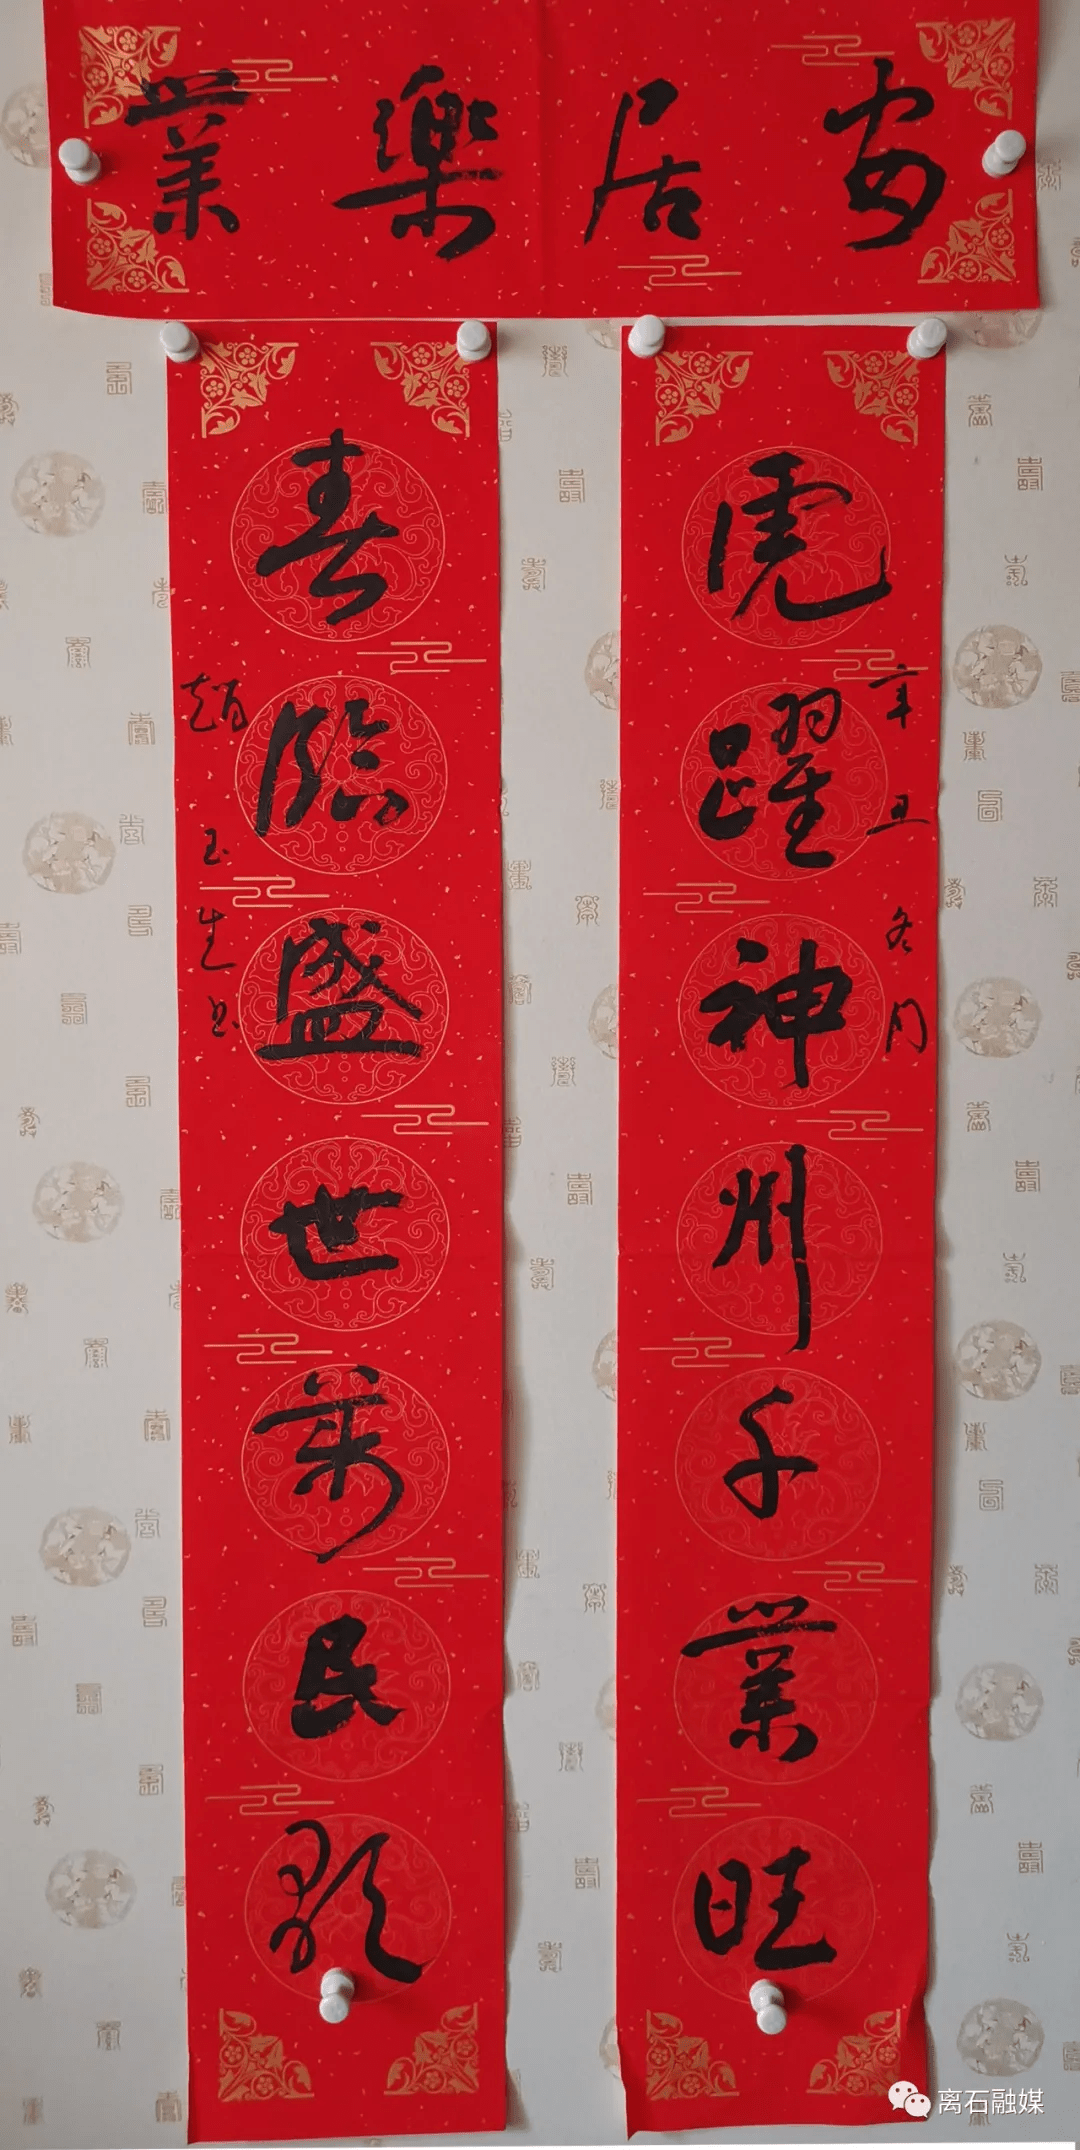 安居樂業
虎躍神州千業旺
辛丑冬月
春臨盛世萬民歡
趙玉生书
离石融媒